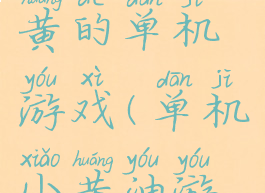 huáng de dān jī
黄的单机
yóu xì dān jī
游戏(单机
xiǎo huáng yóu yóu
小黄油游